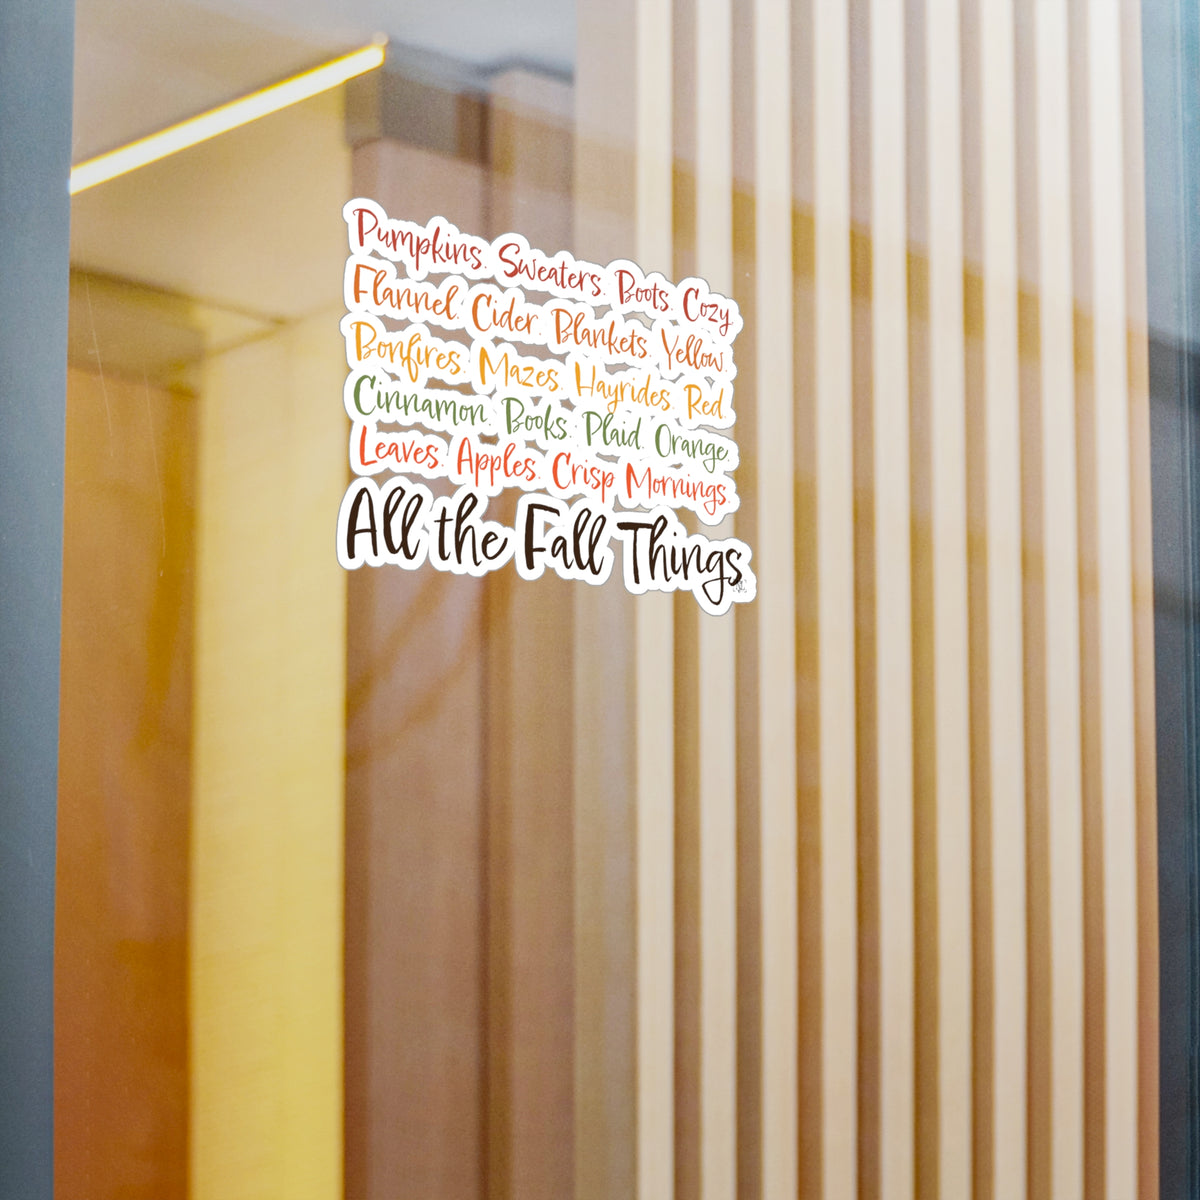 Pumpkins. Sweaters. Boots. Cozy.
Flannel. Cider. Blankets. Yellow.
Bonfires. Mazes. Hayrides. Red.
Cinnamon. Books. Plaid. Orange.
Leaves. Apples. Crisp Mornings.
All the Fall Things